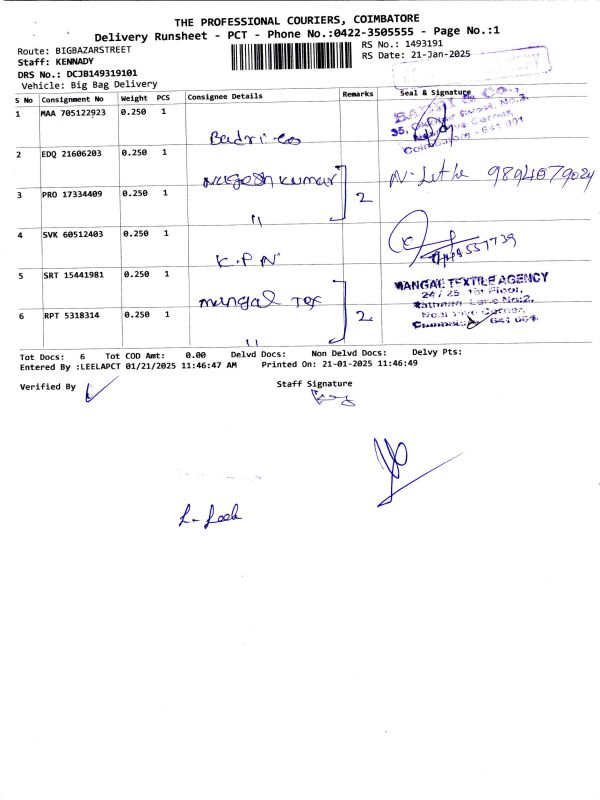 THE PROFESSIONAL COURIERS, COIMBATORE
Delivery Runsheet - PCT - Phone No.:0422-3505555 - Page No.:1
Route: BIGBAZARSTREET
RS No.: 1493191
Staff: KENNADY
RS Date: 21-Jan-2025
DRS No.: DCJB149319101
Vehicle: Big Bag Delivery
S No Consignment No Weight PCS Consignee Details Remarks Seal & Signature
1 MAA 705122923 0.250 1
Badri co
2 EDQ 21606203 0.250 1
Nagesh kumar
3 PRO 17334409 0.250 1
2
"
4 SVK 60512403 0.250 1
K.P.N
5 SRT 15441981 0.250 1
MANGAL TEXTILE AGENCY
24 / 25 1st Floor,
mangal Tex
6 RPT 5318314 0.250 1
2
"
Tot Docs: 6 Tot COD Amt: 0.00 Delvd Docs: Non Delvd Docs: Delvy Pts:
Entered By :LEELAPCT 01/21/2025 11:46:47 AM Printed On: 21-01-2025 11:46:49
Verified By
Staff Signature